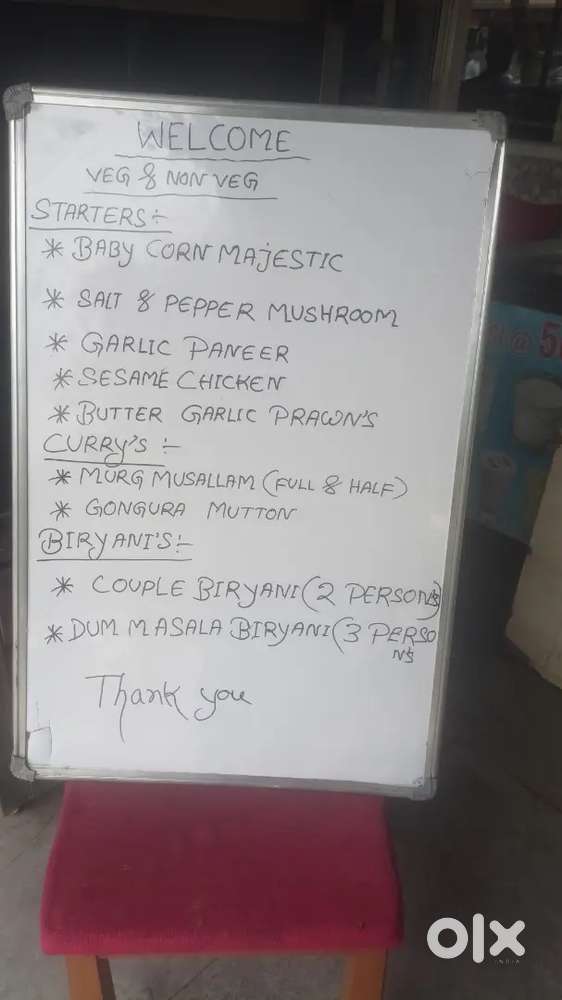 WELCOME
VEG & NON VEG
STARTERS:-
* BABY CORN MAJESTIC
* SALT & PEPPER MUSHROOM
* GARLIC PANEER
* SESAME CHICKEN
* BUTTER GARLIC PRAWN'S
CURRY'S :-
* MURG MUSALLAM (FULL & HALF)
* GONGURA MUTTON
BIRYANI'S:-
* COUPLE BIRYANI (2 PERSON'S)
* DUM MASALA BIRYANI (3 PERSO
N'S
Thank you
@ 5
olx
INDIA